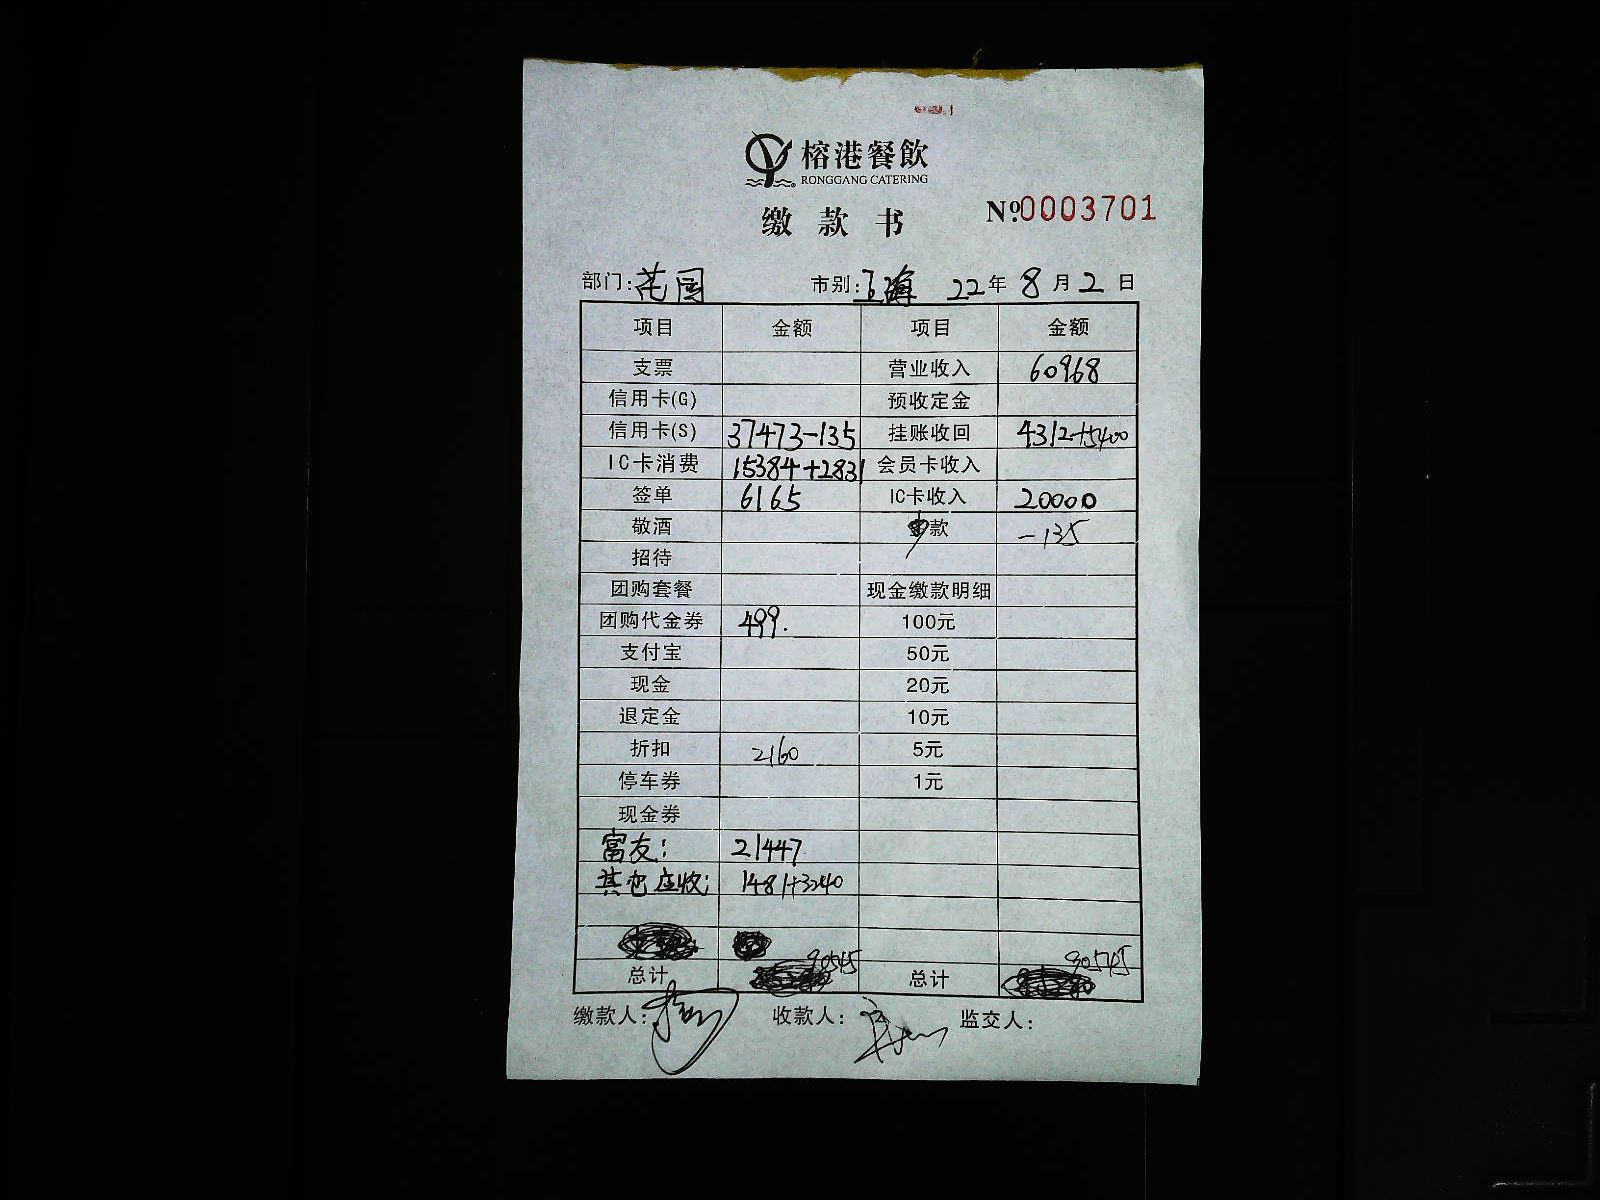 榕港餐飲
RONGGANG CATERING
缴款书
№0003701
部门:花园 市别:上海 22年8月2日
项目 金额 项目 金额
支票 营业收入 60968
信用卡(G) 预收定金
信用卡(S) 37473-135 挂账收回 4312+5400
IC卡消费 15384+2831 会员卡收入
签单 6165 IC卡收入 20000
敬酒 款 -135
招待
团购套餐 现金缴款明细
团购代金券 499. 100元
支付宝 50元
现金 20元
退定金 10元
折扣 2160 5元
停车券 1元
现金券
富友: 21447
其他应收: 1481+3240
总计 90545 总计 90545
缴款人: 收款人: 监交人: